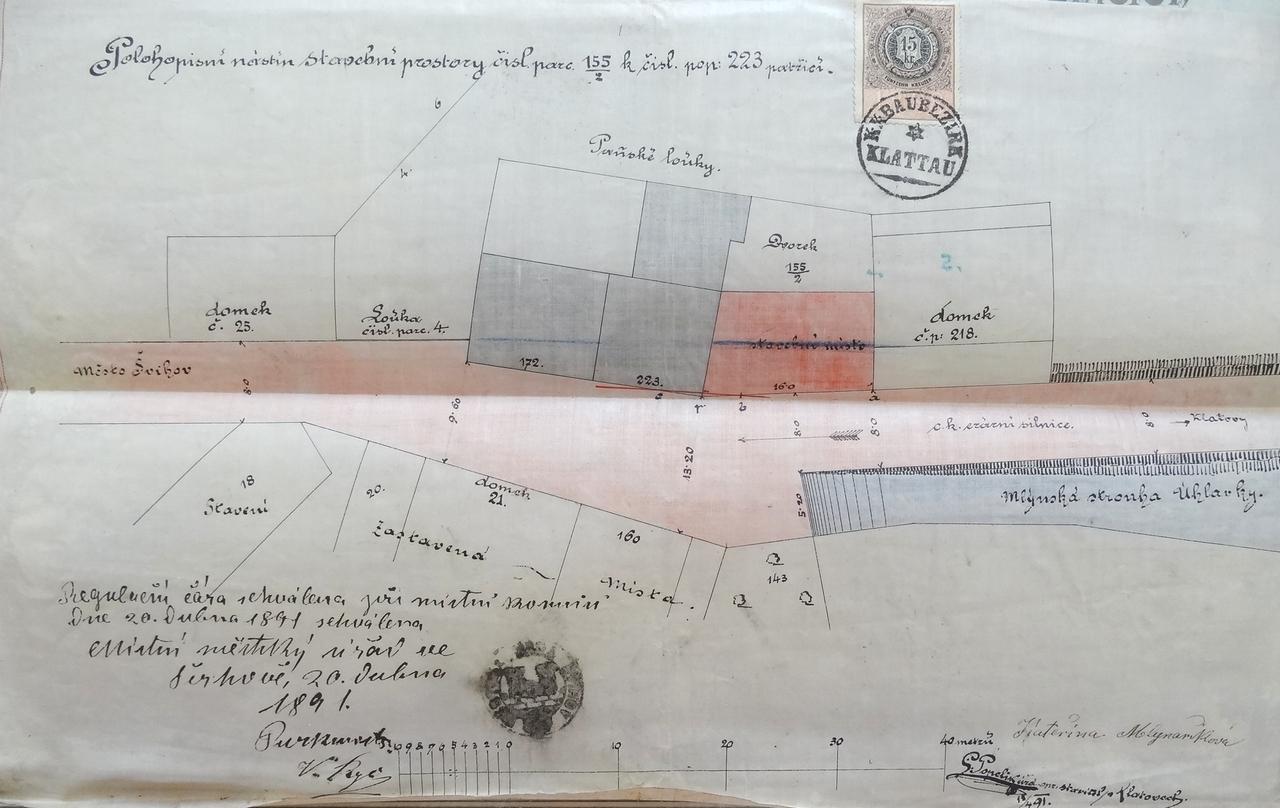 Polohopisní nástin stavební prostory čísl. parc. 155/2 k čísl. pop. 223 patřící.
15
kr.
K.K. BAUBEZIRK
KLATTAU
6
4
Paňské loúky.
Dvorek
155/2
2.
domek
č. 25.
Loúka
čísl. parc. 4.
domek
č.p. 218.
stavební místo
172.
223.
16·0
Město Švihov
8·0
9·60
r
b
a
8·0
8·0
8·0
c.k. erární silnice.
Klatovy
13·20
5·20
18
Stavení
20.
domek
21.
Zastavená
160
Místa.
143
Mlýnská strouha Úhlavky.
Regulační čára schválena při místní komisi
Dne 20. dubna 1891 schválena
Místní městský úřad ve
Švihově, 20. dubna
1891.
Purkmistr
10 9 8 7 6 5 4 3 2 1 0
10
20
30
40 metrů
Kateřina
v Klatovech.